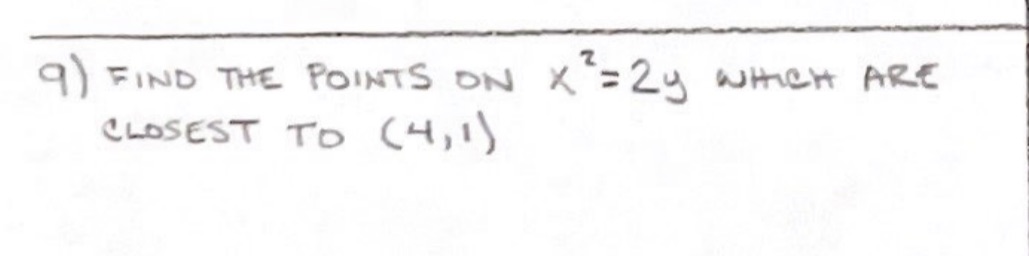 9) FIND THE POINTS ON x²=2y WHICH ARE
CLOSEST TO (4,1)